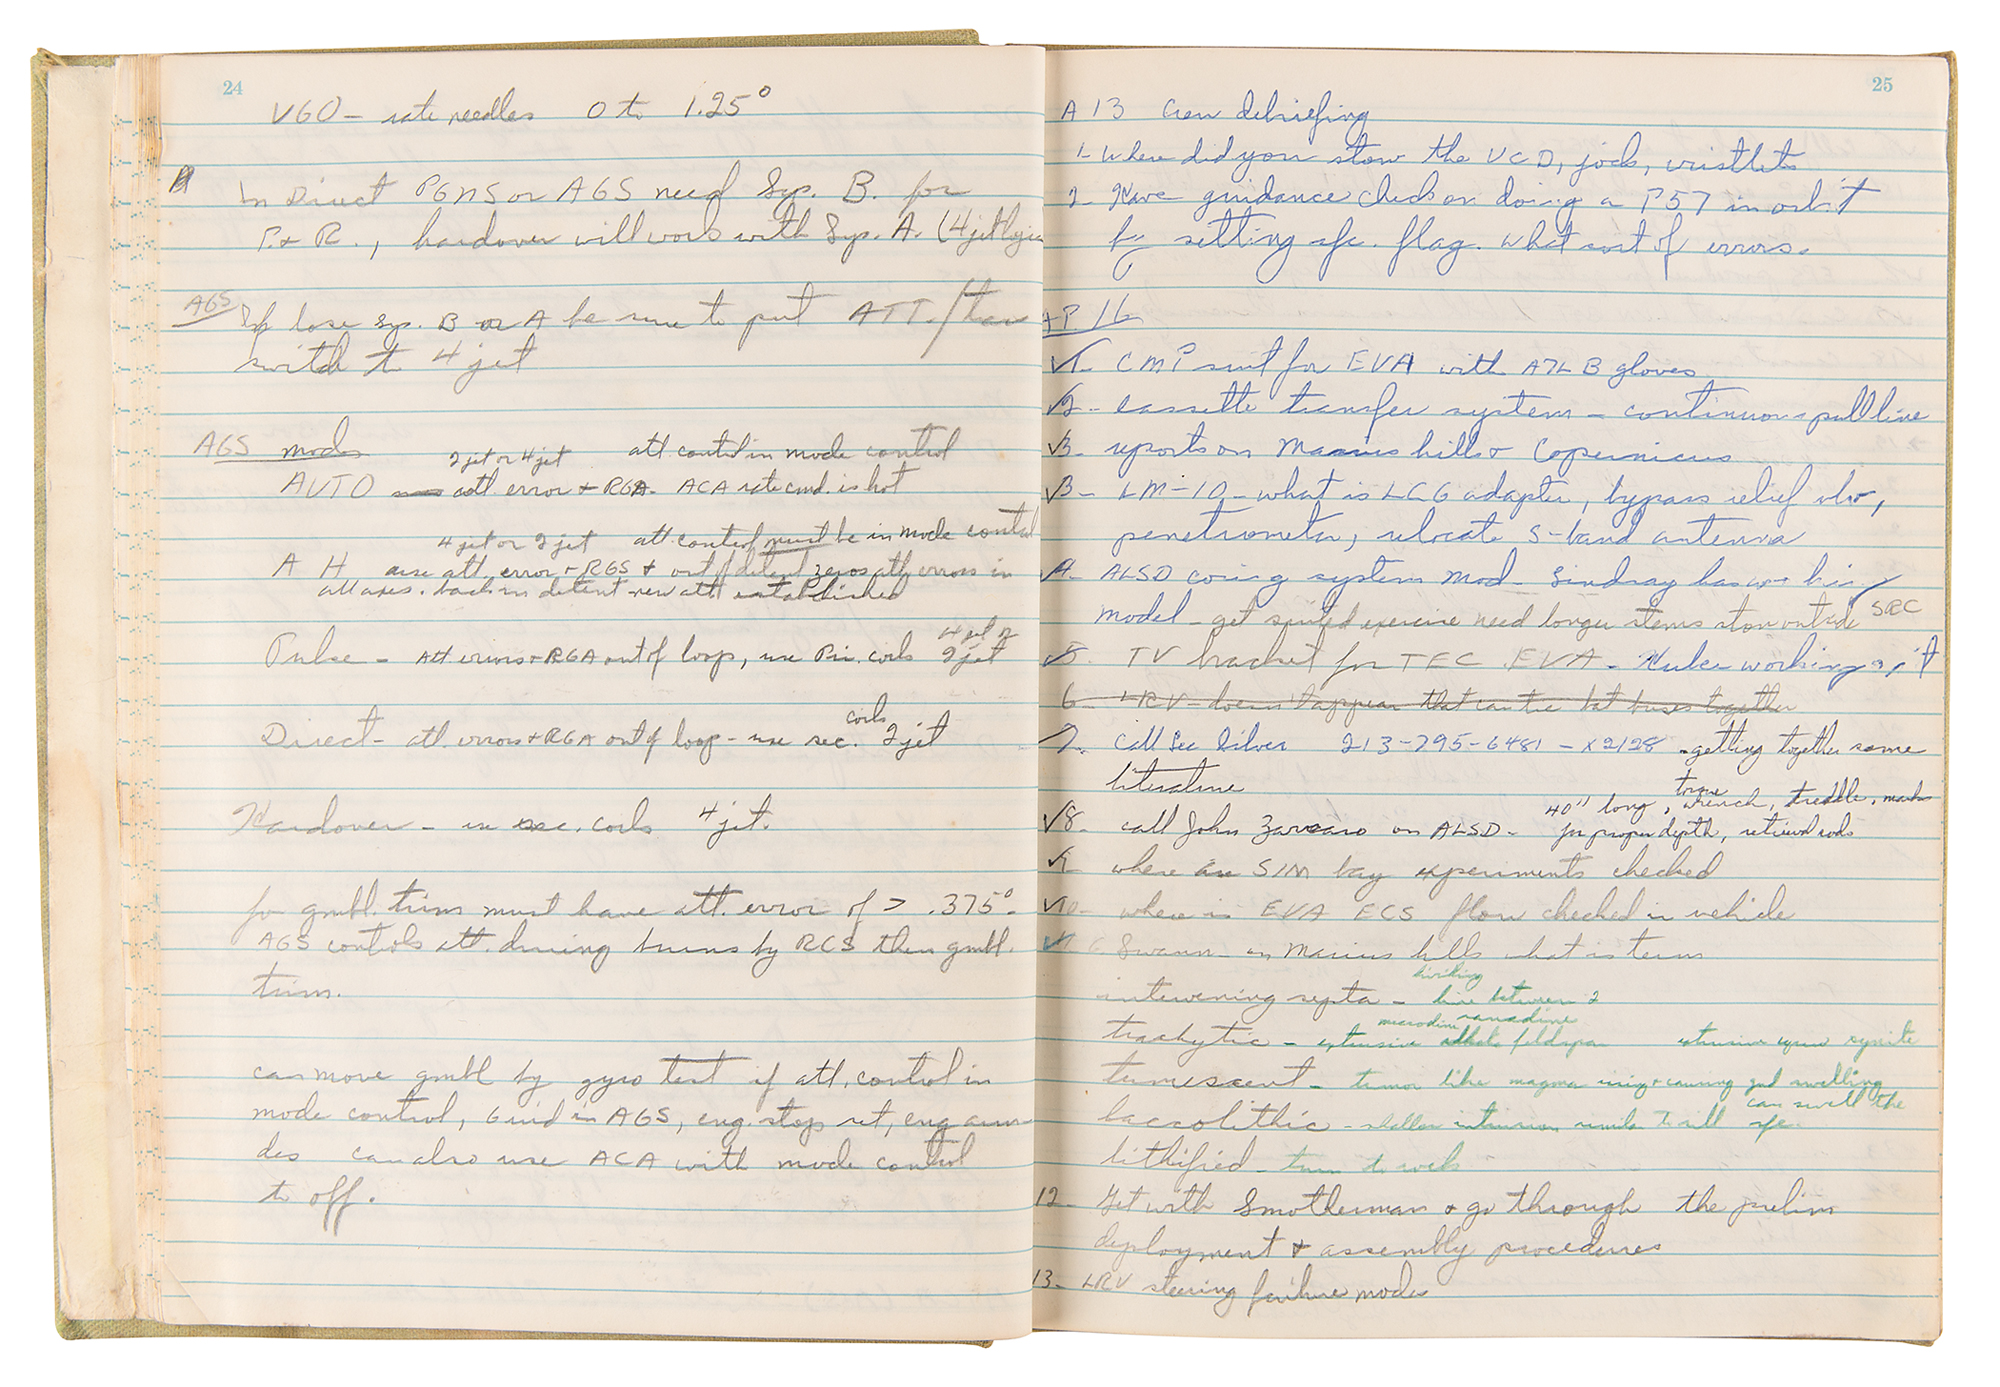 24
VGO - rate needles 0 to 1.25°
In Direct PGNS or AGS need Sys. B. for
P. + R., hardover will work with Sys. A. (4 jet logic
AGS If lose Sys. B or A be sure to put ATT./tran
switch to 4 jet
AGS modes
2 jet or 4 jet att control in mode control
AUTO att. error + RGA. ACA rate cmd. is hot
4 jet or 2 jet att. control must be in mode control
A H use att. error + RGS + out of detent zeros att errors in
all axes. back in detent new att established
Pulse - Att errors + RGA out of loop, use Pri. coils 4 jet or 2 jet
Direct - att. errors + RGA out of loop - use sec. coils 2 jet
Hardover - in sec. coils 4 jet.
for gmbl. trim must have att. error of > .375°.
AGS controls att. during burns by RCS then gmbl.
trim.
can move gmbl by gyro test if att. control in
mode control, Guid in AGS, eng. stop set, eng arm
des can also use ACA with mode control
to off.
25
A 13 Crew debriefing
1- Where did you stow the UCD, jocks, wristlets
2- Have guidance check on doing a P57 in orbit
by setting sfc. flag. What sort of errors.
AP. 16
√1- CMP suit for EVA with A7LB gloves
√2- cassette transfer system - continuous pull line
√3- reports on Marius hills + Copernicus
√3- LM-10 - what is LCG adapter, bypass relief vlv,
penetrometer, relocate S-band antenna
4- ALSD coring system mod - Lindsay has
model - get spirited exercise need longer stems stow outside SRC
√5. TV bracket for TEC EVA - working it
6- LRV - doesn't appear that can tie bat buses together
7. Call Lee Silver 213-795-6481 - x2128 - getting together some
literature
√8- call John Zarcaro on ALSD - 40" long, wrench, treddle, marks
for proper depth, retrieved rods
√9- where are SIM bay experiments checked
√10- where is EVA ECS flow checked in vehicle
Swann - in Marius hills what is term
intervening septa - dividing line between 2
trachytic - extrusive alkali feldspar extrusive syenite
tumescent - tumor like magma rising + causing gnd swelling
laccolithic - shallow intrusion similar to sill can swell the sfc.
lithified - turn to rock
12- Get with Smotherman + go through the prelim
deployment + assembly procedures
13- LRV steering failure modes